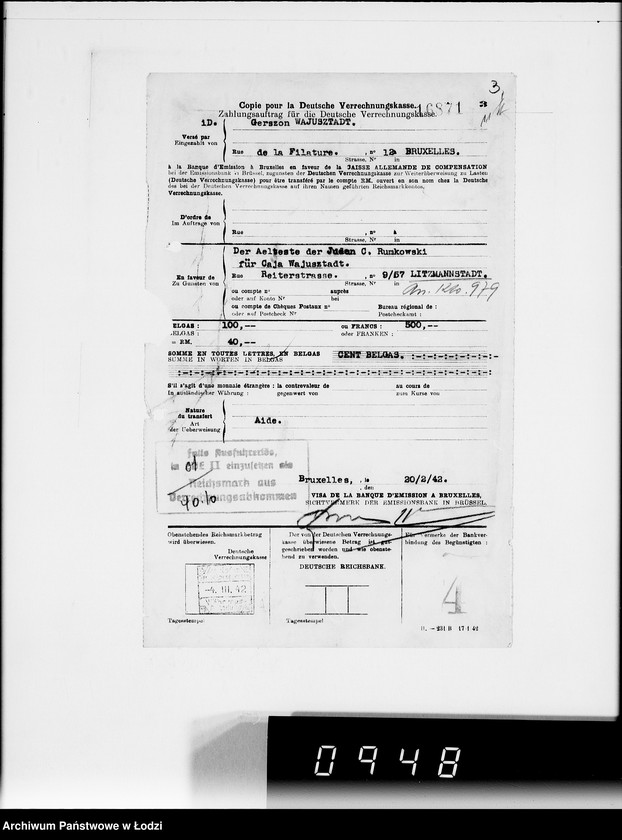 3
Copie pour la Deutsche Verrechnungskasse.
16871
Zahlungsauftrag für die Deutsche Verrechnungskasse.
1D. Gerszon WAJUSZTADT.
Versé par
Eingezahlt von
Rue de la Filature. , n° 12 BRUXELLES.
Strasse, Nr in
à la Banque d'Emission à Bruxelles en faveur de la CAISSE ALLEMANDE DE COMPENSATION
bei der Emissionsbank in Brüssel, zugunsten der Deutschen Verrechnungskasse zur Weiterüberweisung zu Lasten
(Deutsche Verrechnungskasse) pour être transféré par le compte RM. ouvert en son nom chez la Deutsche
des bei der Deutschen Verrechnungskasse auf ihren Namen geführten Reichsmarkkontos.
Verrechnungskasse.
D'ordre de
Im Auftrage von
Rue , n° à
Strasse, Nr in
Der Aelteste der Juden C. Rumkowski
für Caja Wajusztadt.
En faveur de
Zu Gunsten von
Rue Reiterstrasse. , n° 9/57 LITZMANNSTADT.
Strasse, Nr in
An. Kto. 979
ou compte n° auprès
oder auf Konto Nr bei
ou compte de Chèques Postaux n° Bureau régional de :
oder auf Postcheck Nr Postcheckamt :
ELGAS : 100,-- ou FRANCS : 500,--
BELGAS : oder FRANKEN :
= RM. 40,--
SOMME EN TOUTES LETTRES, EN BELGAS CENT BELGAS.
SUMME IN WORTEN IN BELGAS
S'il s'agit d'une monnaie étrangère : la contrevaleur de au cours de
In ausländischer Währung : gegenwert von zum Kurse von
Nature
du transfert
Art
der Ueberweisung
Aide.
falls Ausfuhrerlös,
in einzusetzen als
Reichsmark aus
Verrechnungsabkommen
Bruxelles, le 20/2/42.
, den
VISA DE LA BANQUE D'EMISSION A BRUXELLES,
SICHTVERMERK DER EMISSIONSBANK IN BRÜSSEL
Obenstehendes Reichsmarkbetrag
wird überwiesen.
Deutsche
Verrechnungskasse
-4. III. 42
Tagesstempel
Der von der Deutschen Verrechnungs-
kasse überwiesene Betrag ist gut-
geschrieben worden und wie obenste-
hend zu verwenden.
DEUTSCHE REICHSBANK.
Tagesstempel
Für Vermerke der Bankver-
bindung des Begünstigten :
4
0948
Archiwum Państwowe w Łodzi